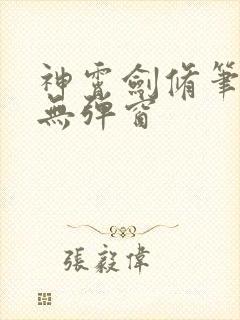 神霄劍脩筆
無彈窗
張毅偉